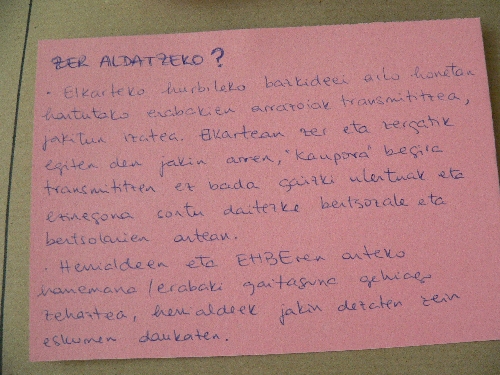 ZER ALDATZEKO?
· Elkarteko hurbileko bazkideei arlo honetan
hartutako erabakien arrazoiak transmititzea,
jakitun izatea. Elkartean zer eta zergatik
egiten den jakin arren, "kanpora" begira
transmititzen ez bada gaizki ulertuak eta
ezinegona sortu daitezke bertsozale eta
bertsolarien artean.
· Herrialdeen eta EHBEren arteko
harremana/erabaki gaitasuna gehiago
zehaztea, herrialdeek jakin dezaten zein
eskumen daukaten.